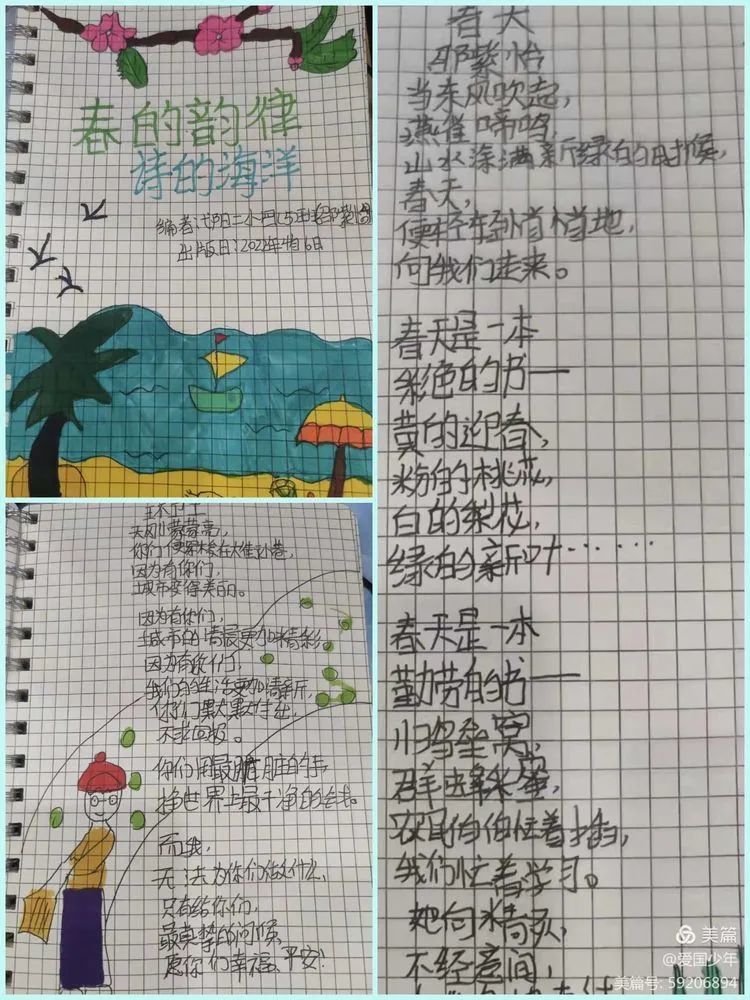 春的韵律
诗的海洋
编者:弋阳二小四(5)班邵紫怡
出版日:2022年4月6日
环卫工
天刚蒙蒙亮,
你们便穿梭在大街小巷,
因为有你们,
城市变得美丽。
因为有你们,
城市的清晨更加精彩。
因为有你们,
我们的生活更加清新,
你们默默付出,
不求回报。
你们用最脏脏的手,
挣世界上最干净的钱。
而我,
无法为你们做什么,
只有给你们,
最真挚的问候,
愿你们幸福、平安!
春天
邵紫怡
当东风吹起,
燕雀啼鸣,
山水涂满新绿的时候,
春天,
便轻轻悄悄地,
向我们走来。
春天是一本
彩色的书——
黄的迎春,
粉的桃花,
白的梨花,
绿的新叶……
春天是一本
勤劳的书——
归鸟垒窝,
群蜂采蜜,
农民伯伯忙着插秧,
我们忙着学习。
她向
不经意间,
美篇
@爱国少年
美篇号: 59206894